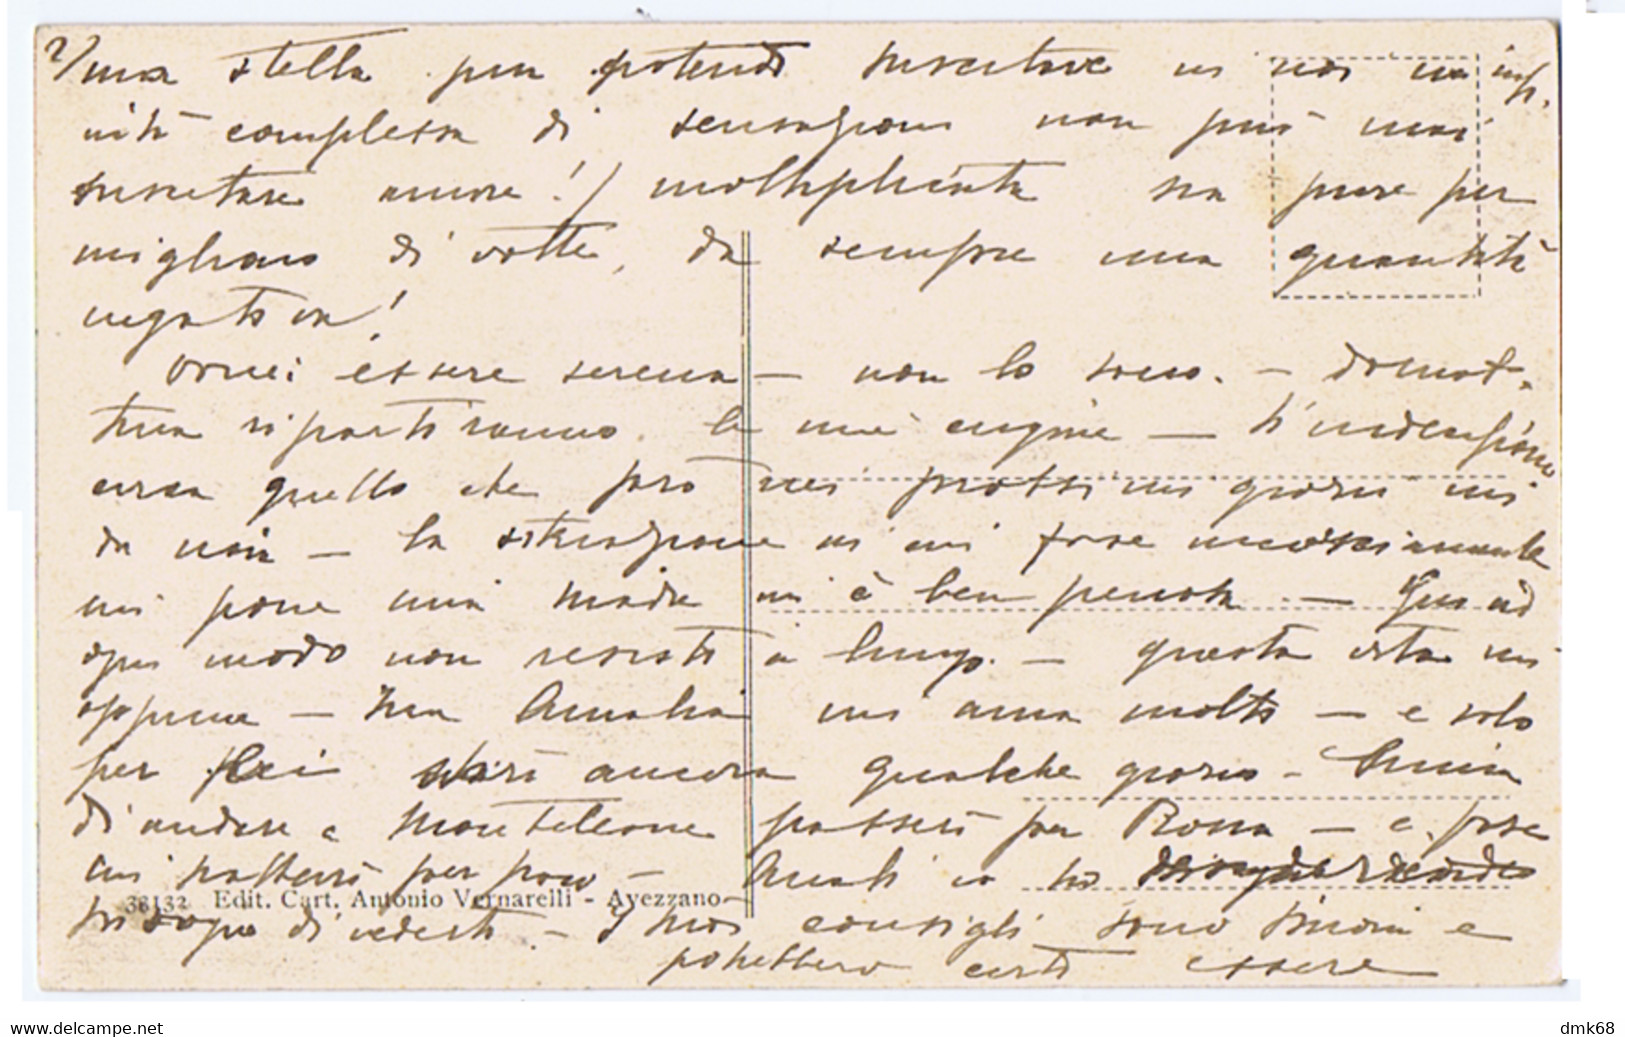 2/ una stella pur potendo suscitare in noi un infi-
nità complessa di sensazioni non può mai
suscitare amore!/ moltiplicata sia pure per
migliaio di volte, da sempre una quantità
negativa!
Vorrei essere serena — non lo sono. — 
ripartiranno. la mia —
quello che farò nei prossimi giorni mi
da noia — la situazione in cui forse necessariamente
mi pone mia madre mi è ben penosa. — Qui ad
ogni modo non resisto a lungo. — questa vita mi
opprime — Zia Amalia mi ama molto — e solo
per lei starò ancora qualche giorno — Prima
di andare a Monteleone passerò per Roma — e forse
mi tratterrò per poco — Amali io ho
bisogno di vederti. — I tuoi consigli sono buoni e
potrebbero certo essere
38132 Edit. Cart. Antonio Vernarelli - Avezzano
www.delcampe.net
dmk68